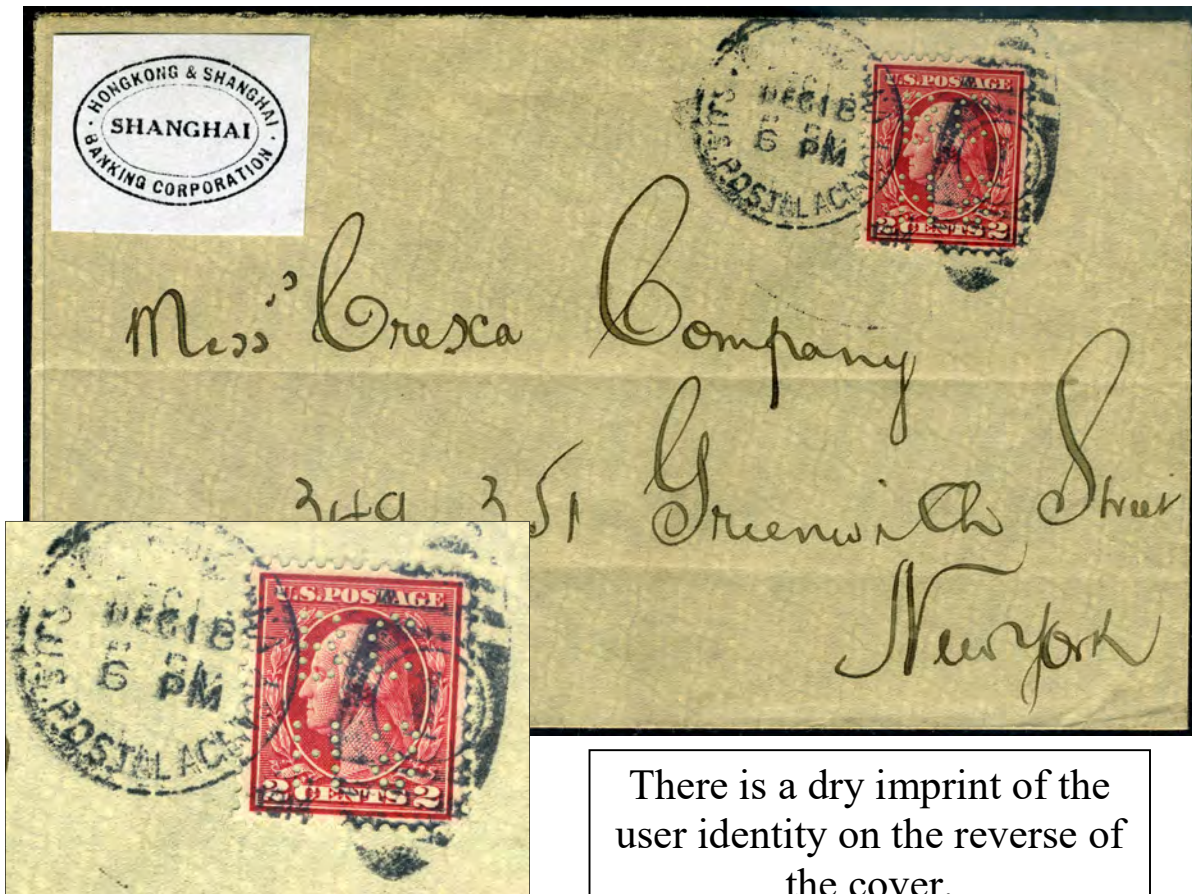 HONGKONG & SHANGHAI
SHANGHAI
BANKING CORPORATION
DEC 18
6 PM
U.S. POSTAL AGENCY
U.S. POSTAGE
2 CENTS 2
Mess' Cresca Company
349 351 Greenwich Street
New York
DEC 18
6 PM
U.S. POSTAL AGENCY
U.S. POSTAGE
2 CENTS 2
There is a dry imprint of the
user identity on the reverse of
the cover.